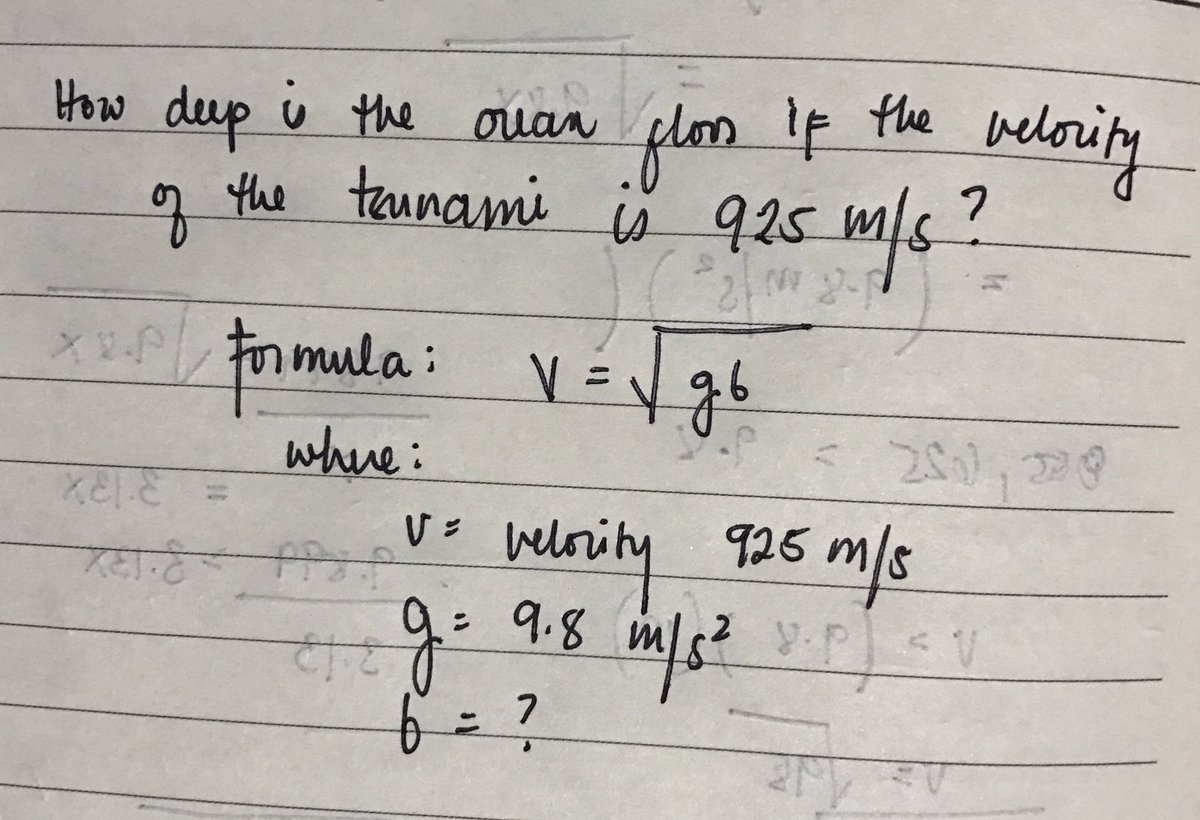 How deep is the ocean floor if the velocity
of the tsunami is 925 m/s?
formula: V = √gb
where:
v = velocity 925 m/s
g = 9.8 m/s²
b = ?